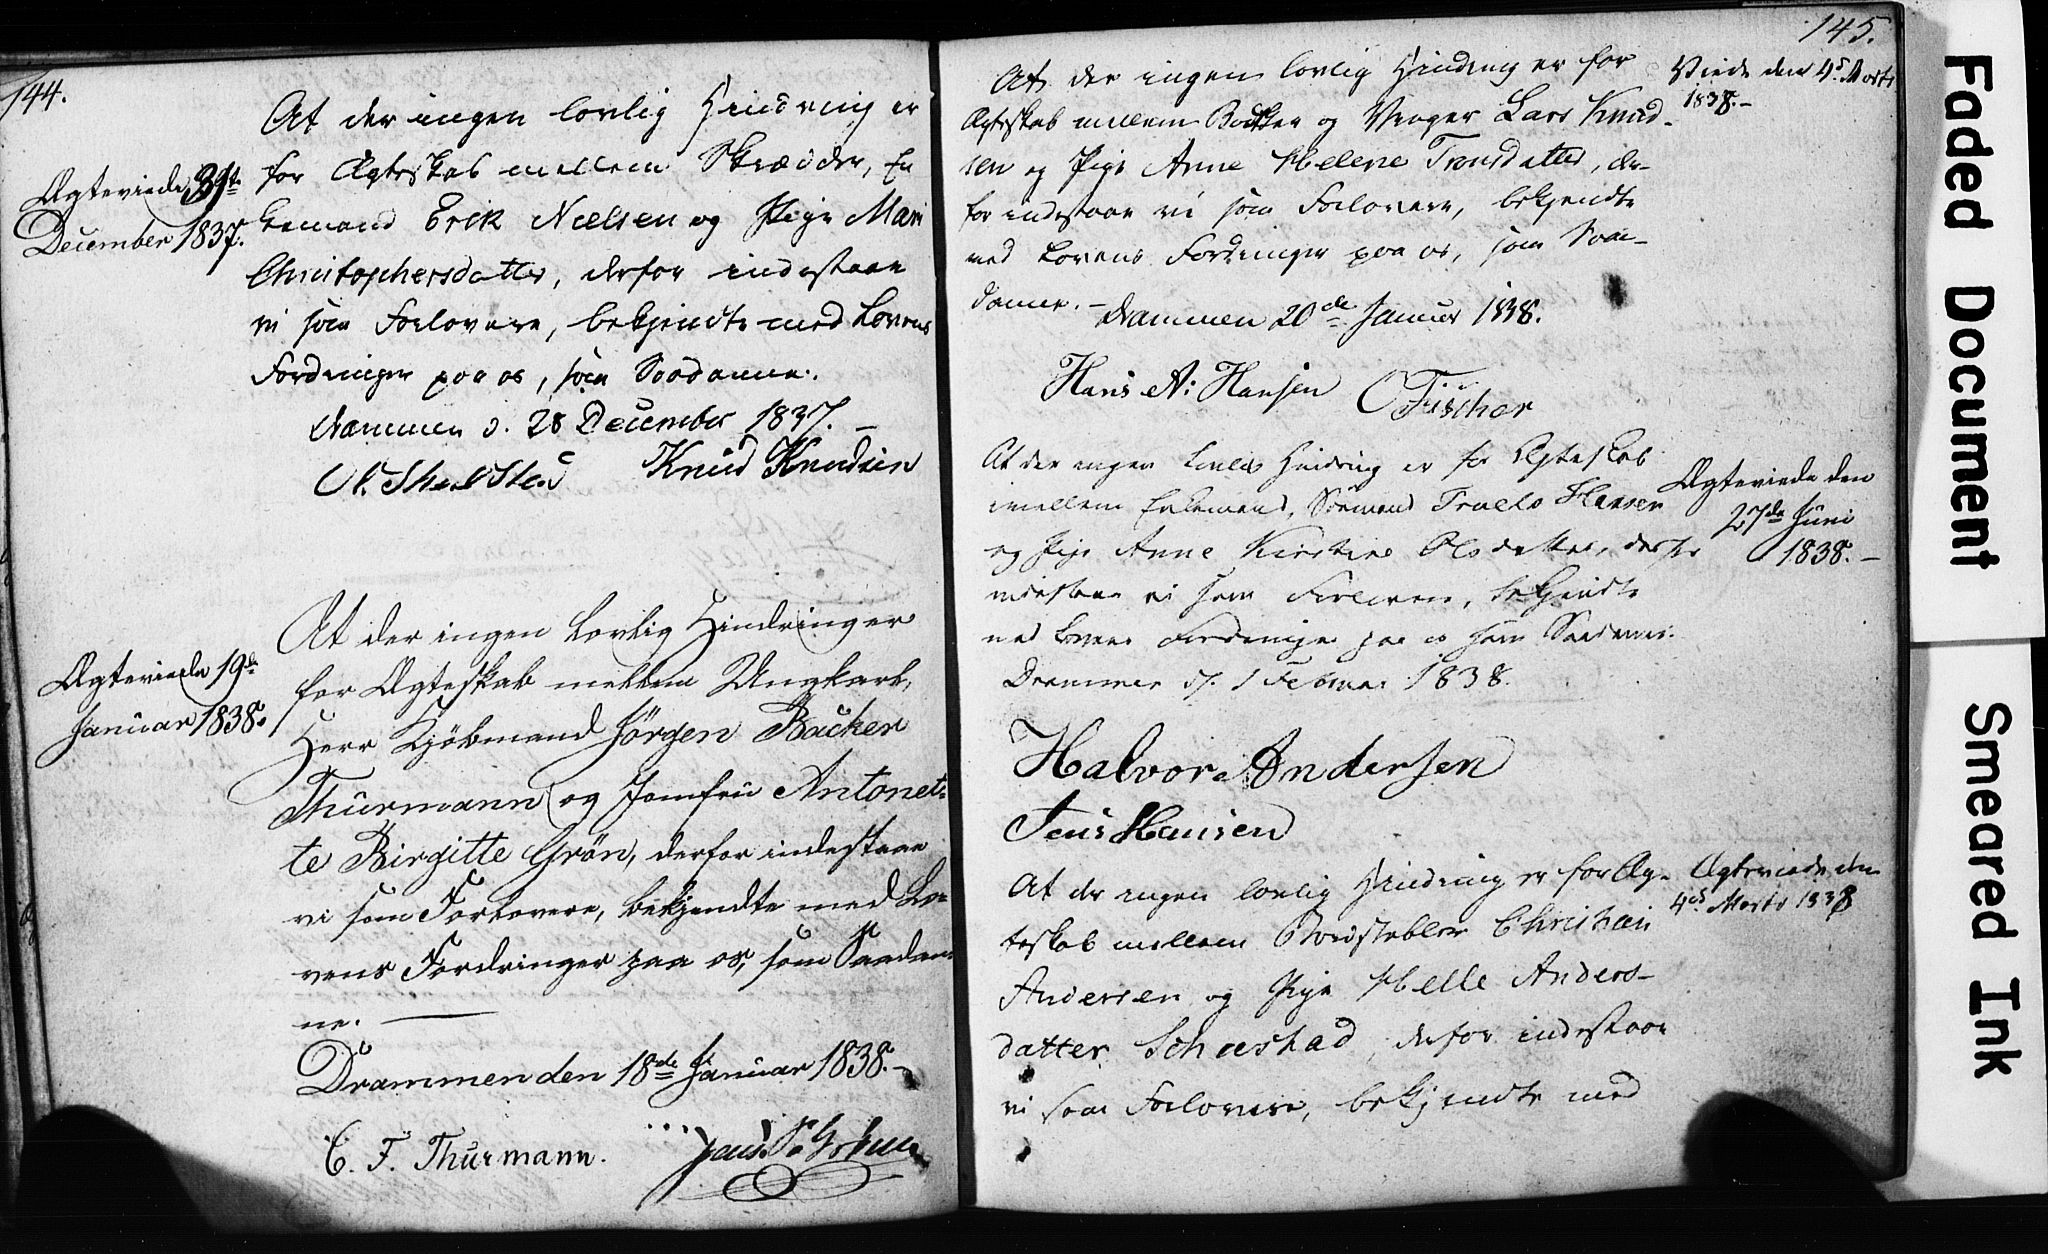 144.
At der ingen lovlig Hindring er
for Ægteskab mellem Skræder, En
kemand Erik Nielsen og Pige Mari
Christophersdatter, derfor indestaae
vi som Forlovere, bekjendte med Lovens
Fordringer paa os, som Saadanne.
Drammen d. 28 December 1837. –
Knud Knudsen
Ægteviede 31te
December 1837.
At der ingen lovlig Hindringer
for Ægteskab mellem Ungkarl,
Herr Kjöbmand Jörgen Backer
Thurmann og Jomfru Antonet-
te Birgitte Grön, derfor indestaae
vi som Forlovere, bekjendte med Lo-
vens Fordringer paa os, som Saadan-
ne.
Drammen den 18de Januar 1838. –
C. F. Thurmann.
Ægteviede 19de
Januar 1838.
145.
At der ingen lovlig Hindring er for
Ægteskab mellem Bödker og Vrager Lars Knud-
sen og Pige Anne Helene Tronsdatter, der-
for indestaae vi som Forlovere, bekjendte
med Lovens Fordringer paa os, som Saa-
danne. –
Drammen 20de Januar 1838.
Hans A: Hansen Fischer
Viede den 4de Marts
1838. –
At der ingen lovlig Hindring er for Ægteskab
imellem Enkemand, Sömand Truels Hansen
og Pige Anne Kirstine Olsdatter, derfor
indestaae vi som Forlovere, bekjendte
med Lovens Fordringer paa os som Saadanne.
Drammen d. 1 Februar 1838.
Halvor Andersen
Jens Hansen
Ægteviede den
27de Juni
1838. –
At der ingen lovlig Hindring er for Æg-
teskab mellem Christian
Andersen og Pige Helle Anders-
datter, derfor indestaae
vi som Forlovere, bekjendte med
Ægteviede den
4de Marts 1838
Faded Document
Smeared Ink